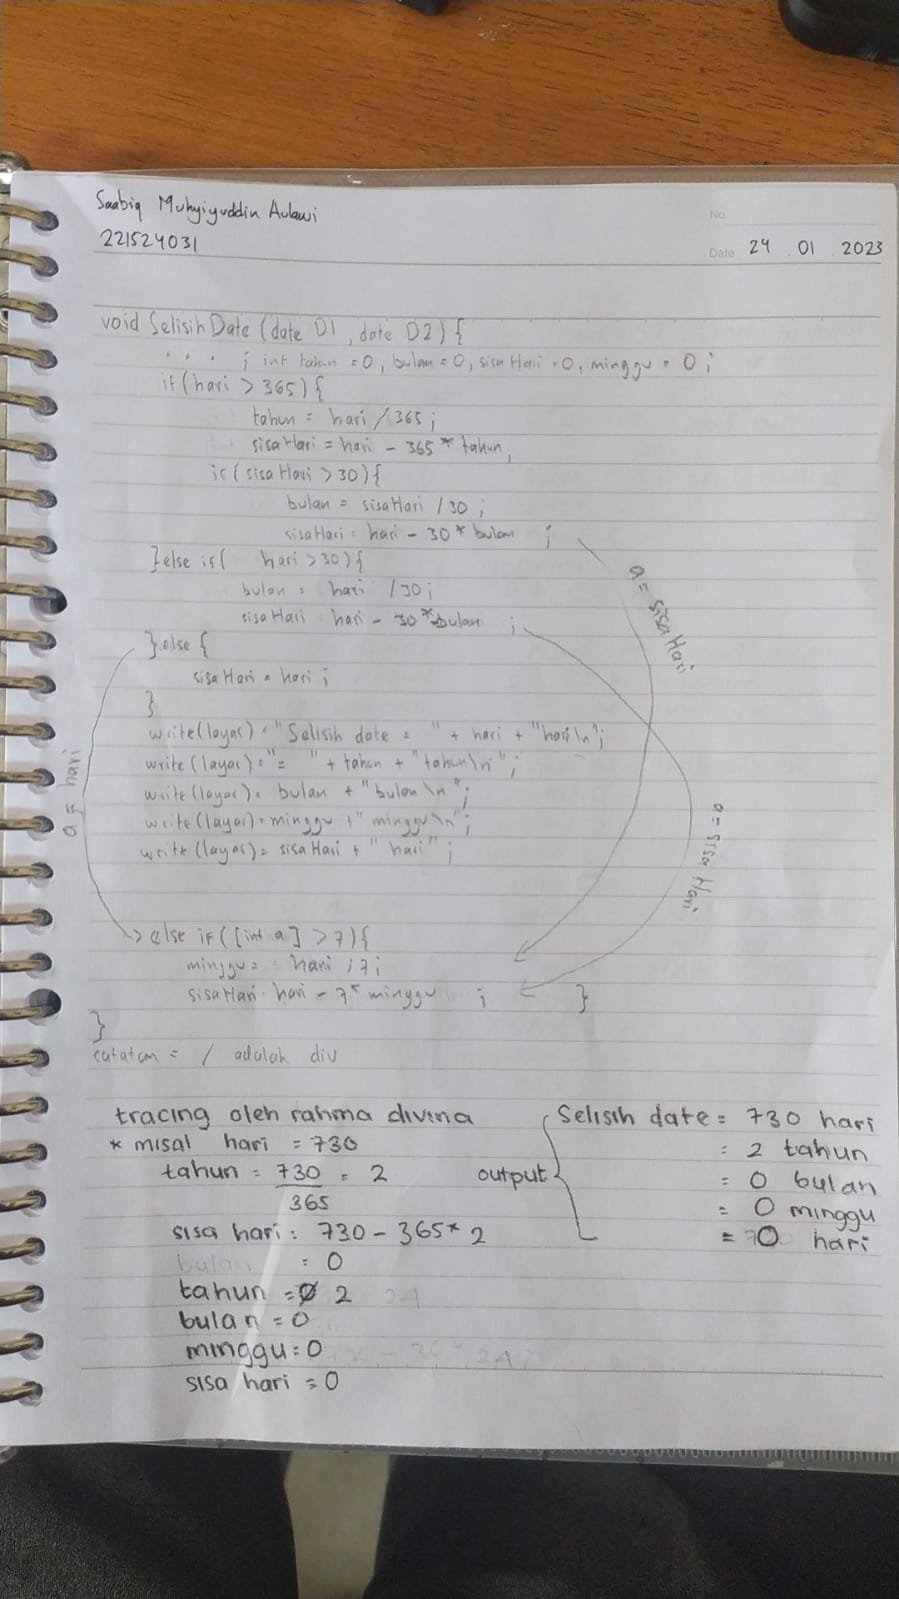 Saabiq Muhyiyuddin Aulawi
221524031
No.
Date 24 01 2023
void SelisihDate (date D1, date D2) {
. . . . ; int tahun = 0, bulan = 0, sisaHari = 0, minggu = 0 ;
if (hari > 365) {
tahun = hari / 365 ;
sisaHari = hari - 365 * tahun,
if (sisaHari > 30) {
bulan = sisaHari / 30 ;
sisaHari = hari - 30 * bulan ;
} else if ( hari > 30) {
bulan = hari / 30 ;
sisaHari hari - 30 * bulan ;
} else {
sisaHari = hari ;
}
write(layar) = "Selisih date = " + hari + "hari \n";
write (layar) = "= " + tahun + "tahun \n" ;
write (layar) = bulan + "bulan \n" ;
write (layar) = minggu + "minggu \n" ;
write (layar) = sisaHari + "hari" ;
a = sisaHari
a = sisaHari
a = hari
-> else if ([int a] > 7) {
minggu = hari / 7 ;
sisaHari = hari - 7 * minggu ; }
}
catatan = / adalah div
tracing oleh rahma divina
* misal hari = 730
tahun = 730 = 2
365
sisa hari : 730 - 365 * 2
bulan = 0
tahun = 0 2
bulan = 0
minggu = 0
sisa hari = 0
output
Selisih date = 730 hari
= 2 tahun
= 0 bulan
= 0 minggu
= 0 hari